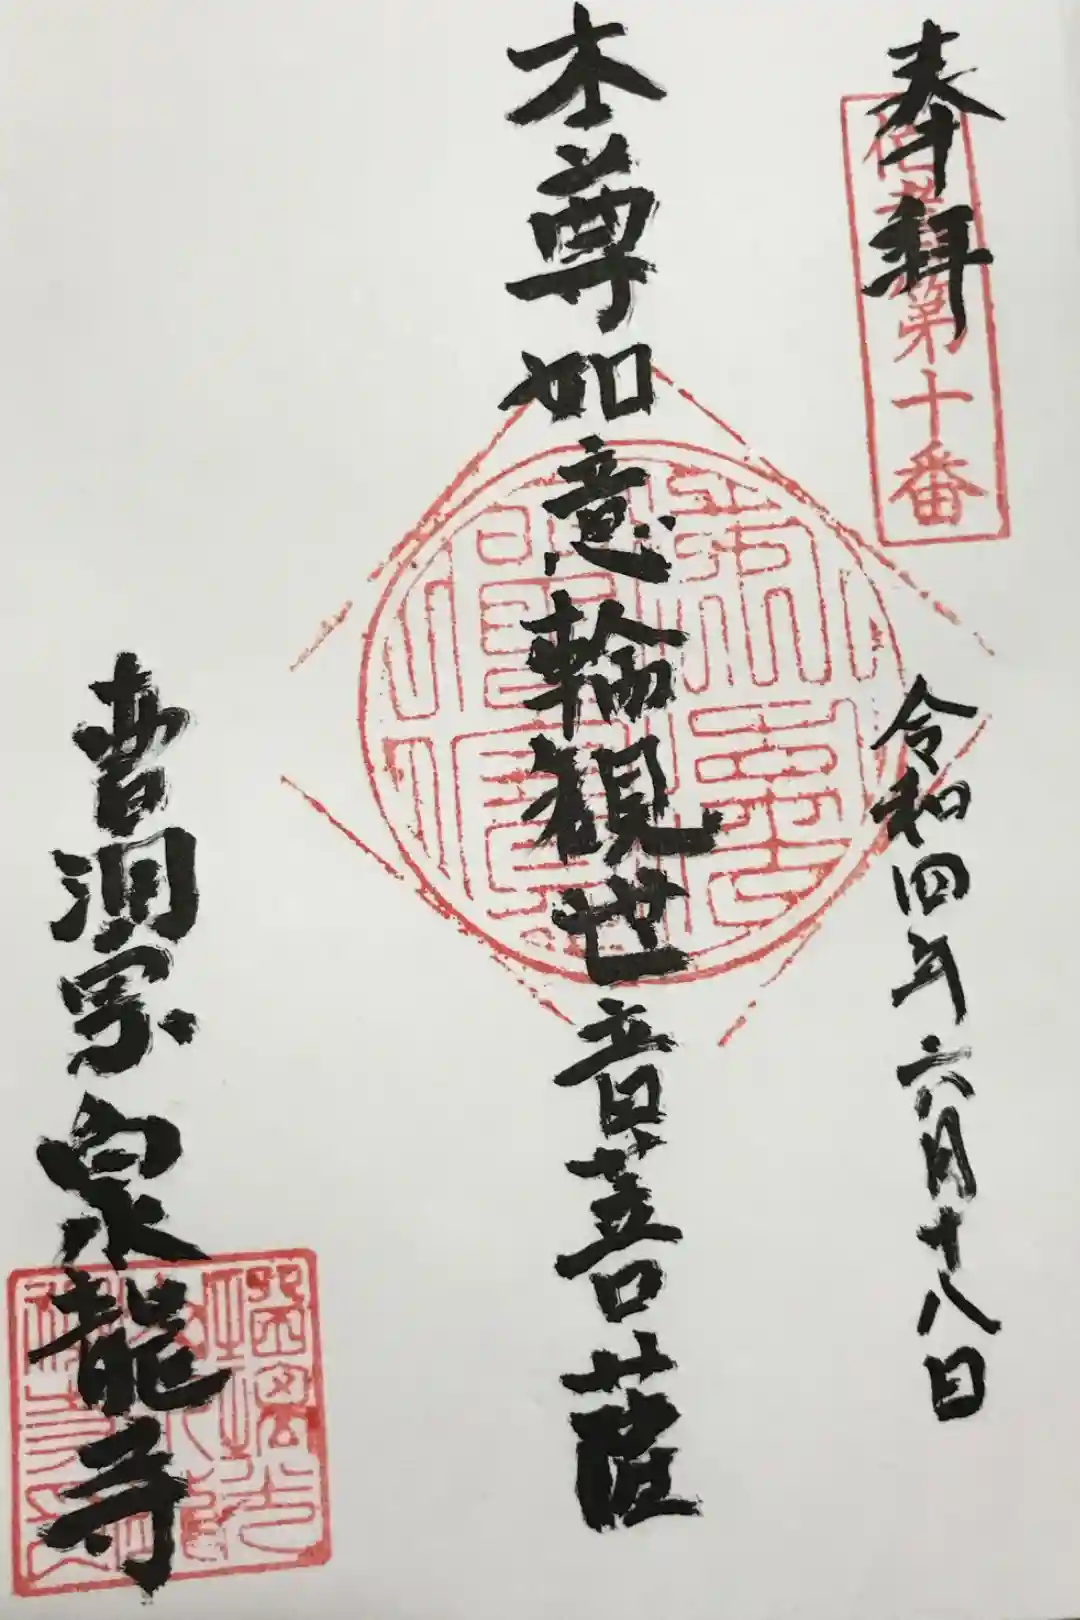 奉拜
第十番
令和四年六月十八日
本尊如意輪観世音菩薩
曹洞宗泉龍寺